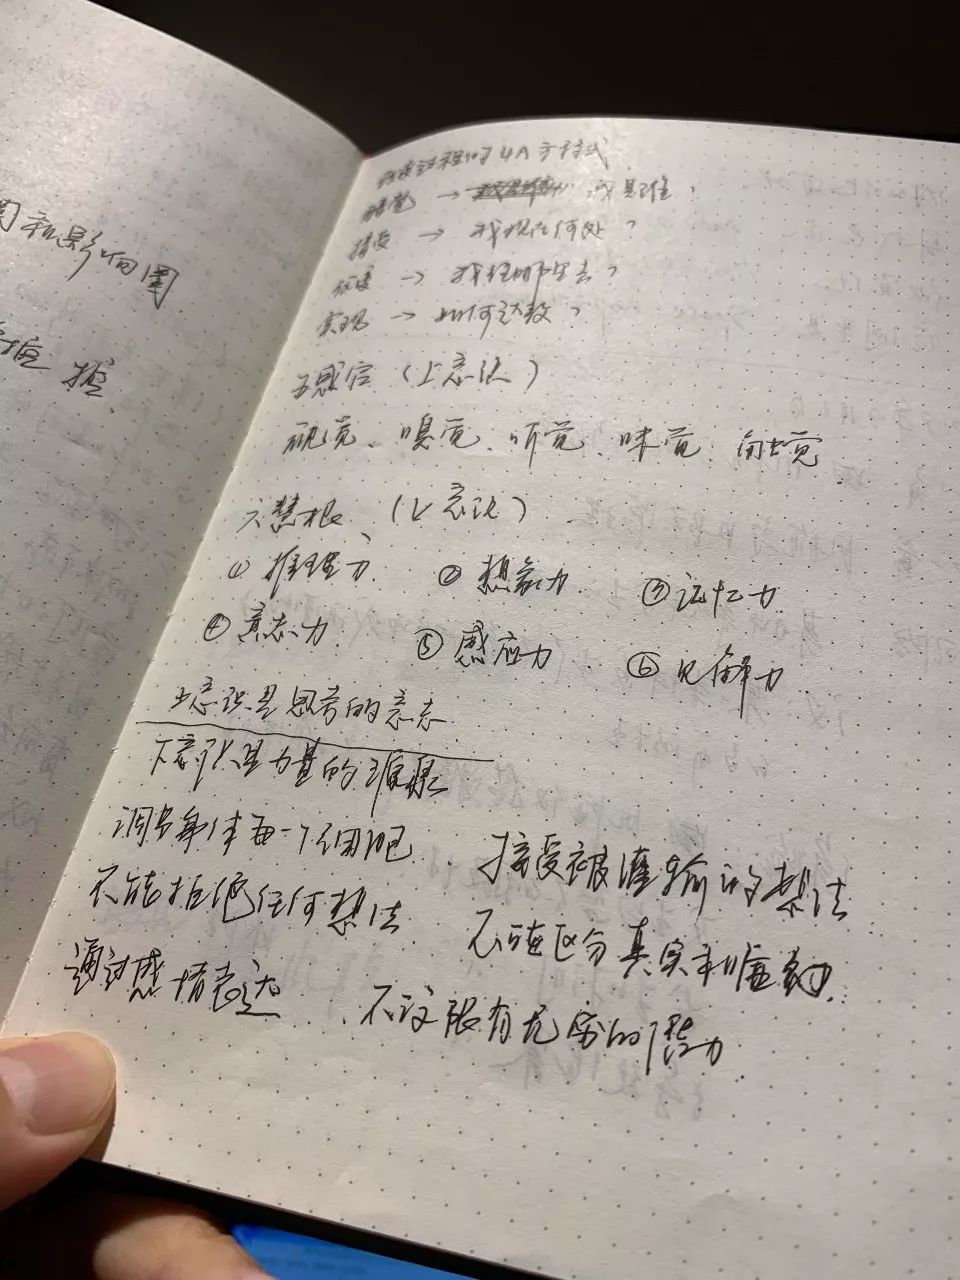 圈和影响圈
过程的4A方程式
→ 我是谁？
接受 → 我现在何处？
→ 我往哪里去？
实现 → 如何达致？
五感官（上意识）
视觉、嗅觉、听觉、味觉 触觉
六慧根（上意识）
① 推理力 ② 想象力 ③ 记忆力
④ 意志力 ⑤ 感应力 ⑥ 见解力
上意识是思考的意志
下意识是力量的源泉
调节身体每一个细胞 接受被灌输的想法
不能拒绝任何想法 不能区分真实和虚幻
通过感情表达 不设限有无穷的潜力